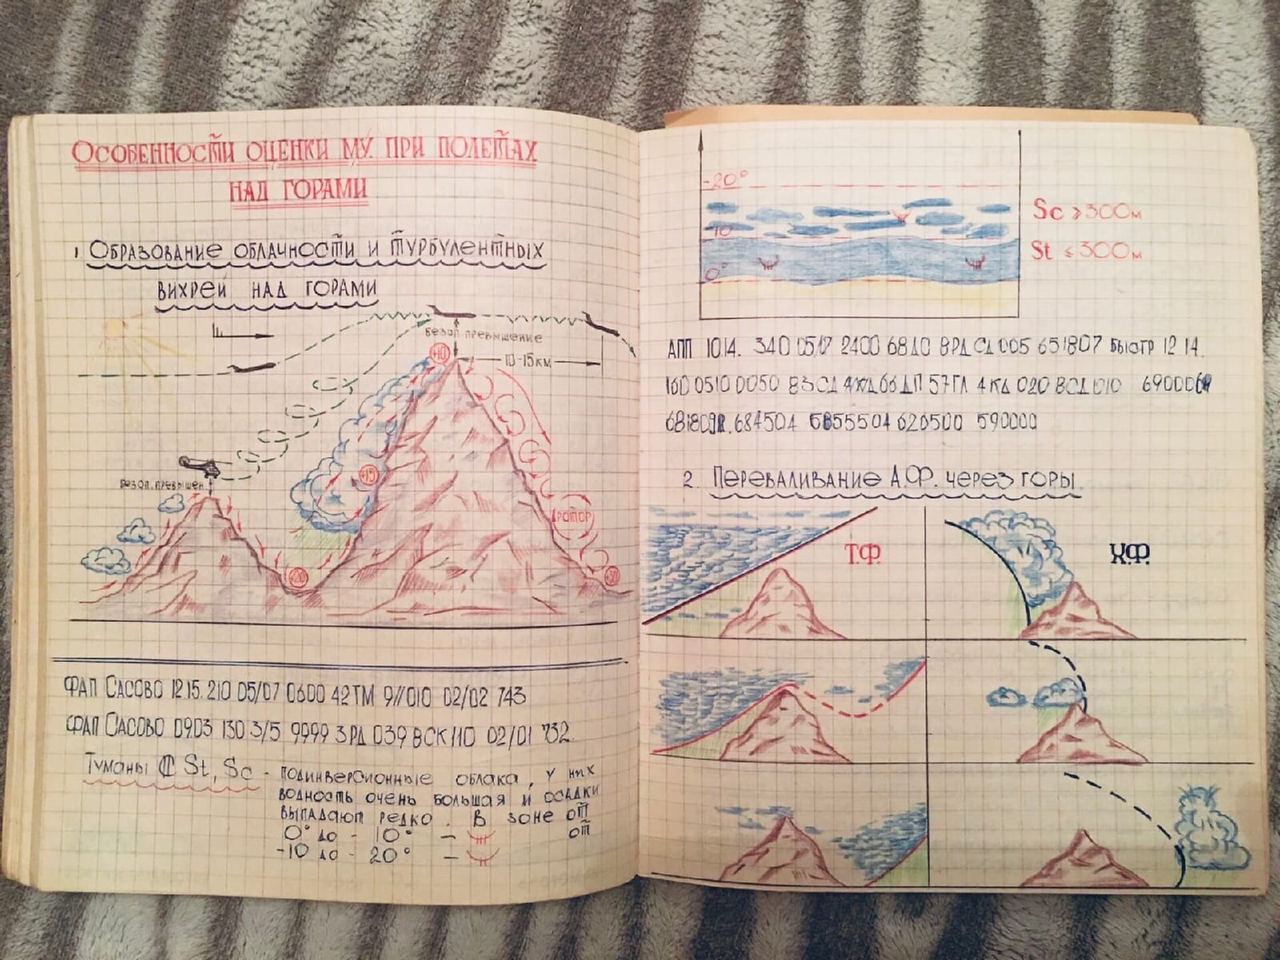 Особенности оценки МУ при полетах
над горами
1 Образование облачности и турбулентных
вихрей над горами
безоп. превышение
+10
10-15км
безоп. превышен.
+15
ротор
+20
+30
ФАП Сасово 1215 210 05/07 0600 42ТМ 9//010 02/02 743
ФАП Сасово 0903 130 3/5 9999 3РД 039 ВСК110 02/01 732
Туманы St, Sc - подинверсионные облака, у них
водность очень большая и осадки
выпадают редко. В зоне от
0° до - 10° - от
-10 до - 20° -
-20°
-10°
0°
Sc ≥300м
St ≤300м
АПП 1014. 340 05/7 2400 68Д0 8РД СД 005 651807 быстр 1214.
160 0510 0050 83СД 4КД66ДП 57ГЛ 4КД 020 ВСД010
684504 5855504 620500 590000
2. Переваливание А.Ф. через горы.
Т.Ф.
Х.Ф.